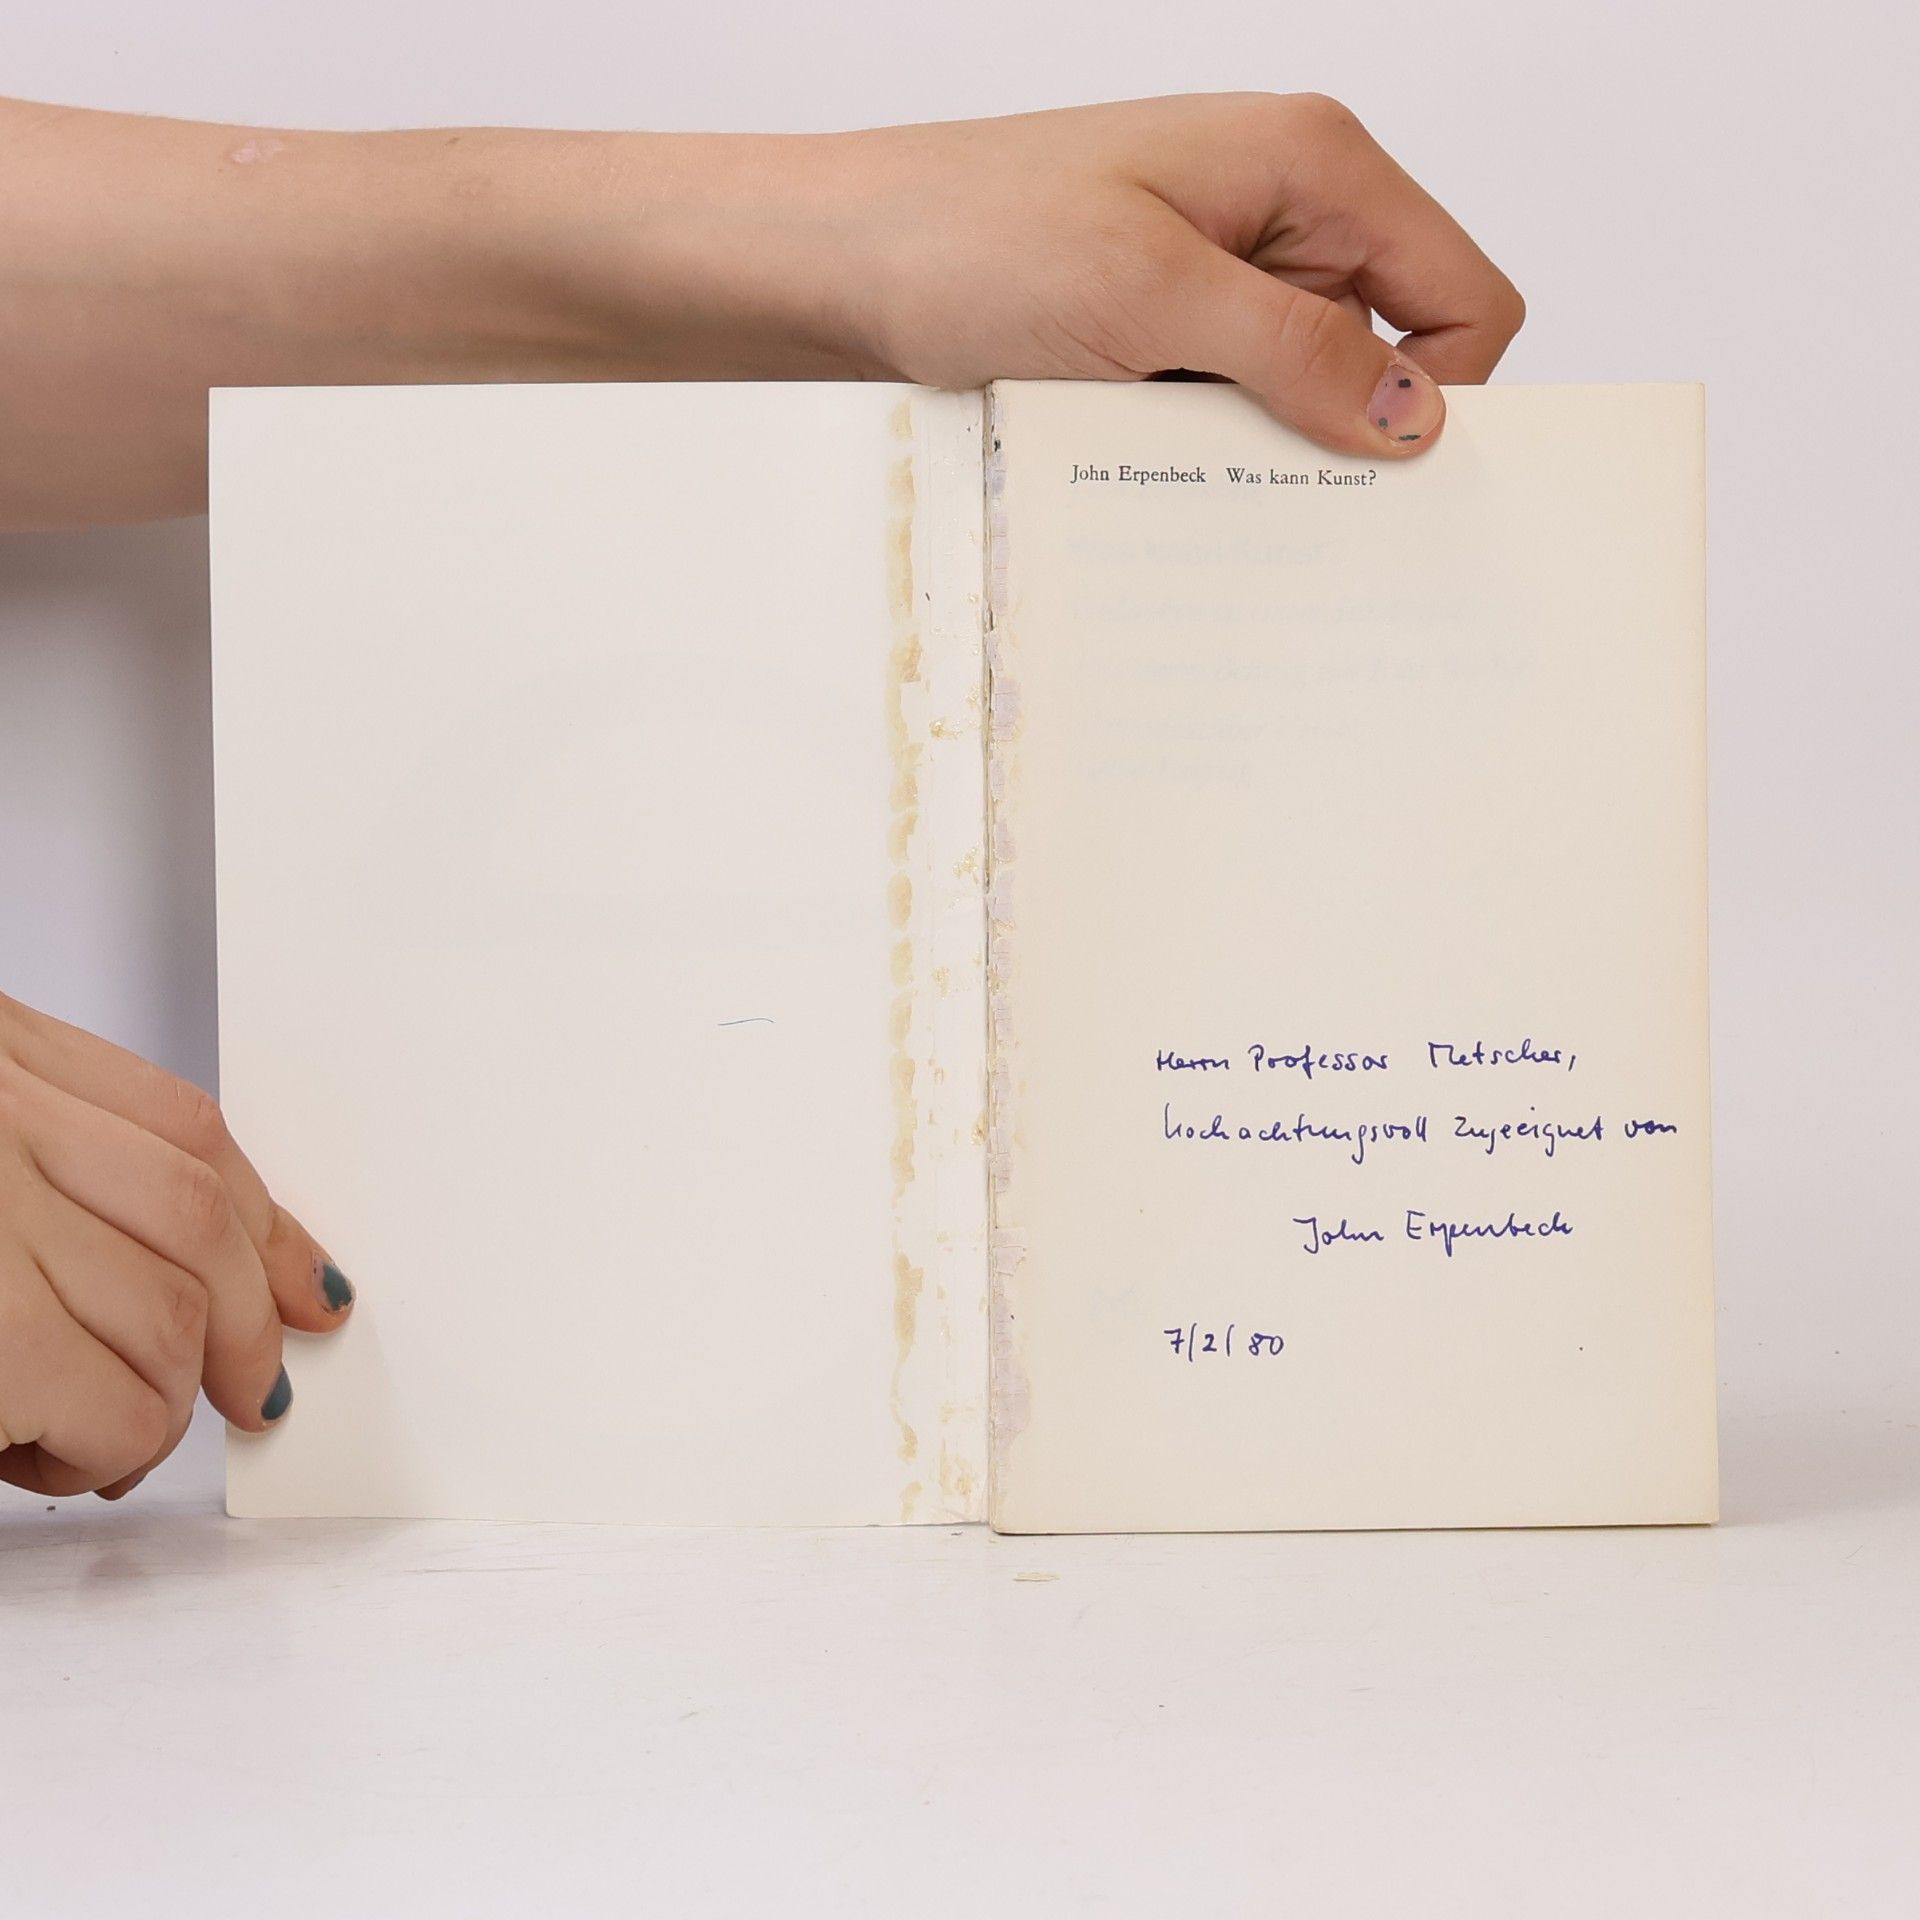 John Erpenbeck Was kann Kunst?
Herrn Professor Metscher,
hochachtungsvoll zugeeignet von
John Erpenbeck
7/2/80